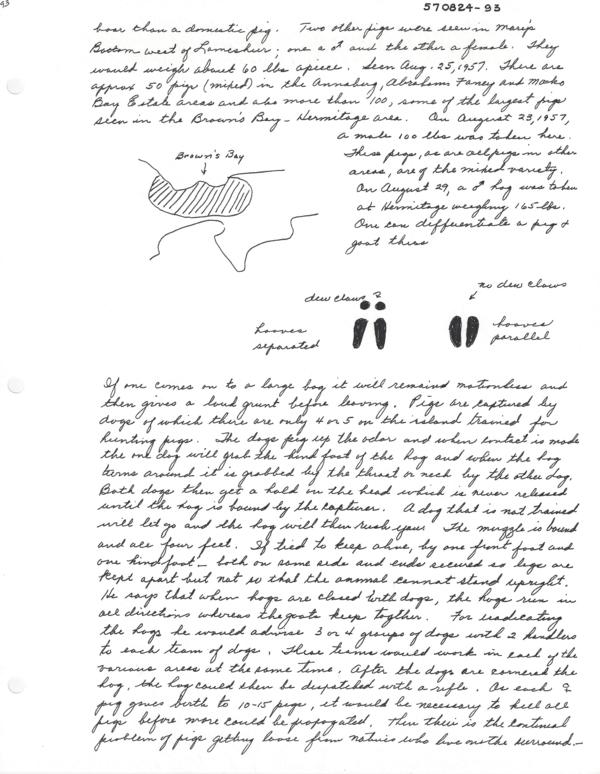 93
570824-93
boar than a domestic pig. Two other pigs were seen in Mary's
Bottom west of Lameshur; one a ♂ and the other a female. They
would weigh about 60 lbs apiece. Seen Aug. 25, 1957. There are
approx 50 pigs (mixed) in the Annaberg, Abrahams Fancy and Maho
Bay Estate areas and also more than 100, some of the largest pigs
seen in the Brown's Bay - Hermitage area. On August 23, 1957,
a male 100 lbs was taken here.
These pigs, as are all pigs in other
areas, are of the mixed variety.
On August 29, a ♂ hog was taken
at Hermitage weighing 165-lbs.
One can differentiate a pig &
goat thus
Brown's Bay
no dew claws
dew claws
hooves
separated
hooves
parallel
If one comes on to a large hog it will remained motionless and
then gives a loud grunt before leaving. Pigs are captured by
dogs of which there are only 4 or 5 on the island trained for
hunting pigs. The dogs pig up the odor and when contact is made
the one dog will grab the hind foot of the hog and when the hog
turns around it is grabbed by the throat or neck by the other dog.
Both dogs then get a hold on the head which is never released
until the hog is bound by the capturer. A dog that is not trained
will let go and the hog will then rush you! The muzzle is bound
and all four feet. If tied to keep alive, by one front foot and
one hind foot - both on same side and ends secured so legs are
kept apart but not so that the animal cannot stand upright.
He says that when hogs are closed with dogs, the hogs run in
all directions whereas the goats keep togther. For eradicating
the hogs he would advise 3 or 4 groups of dogs with 2 handlers
to each team of dogs. These teams would work in each of the
various areas at the same time. After the dogs are cornered the
hog, the hog could then be dispatched with a rifle. As each ♀
pig gives birth to 10-15 pigs, it would be necessary to kill all
pigs before more could be propogated. Then their is the continual
problem of pigs getting loose from natives who live on the surround-